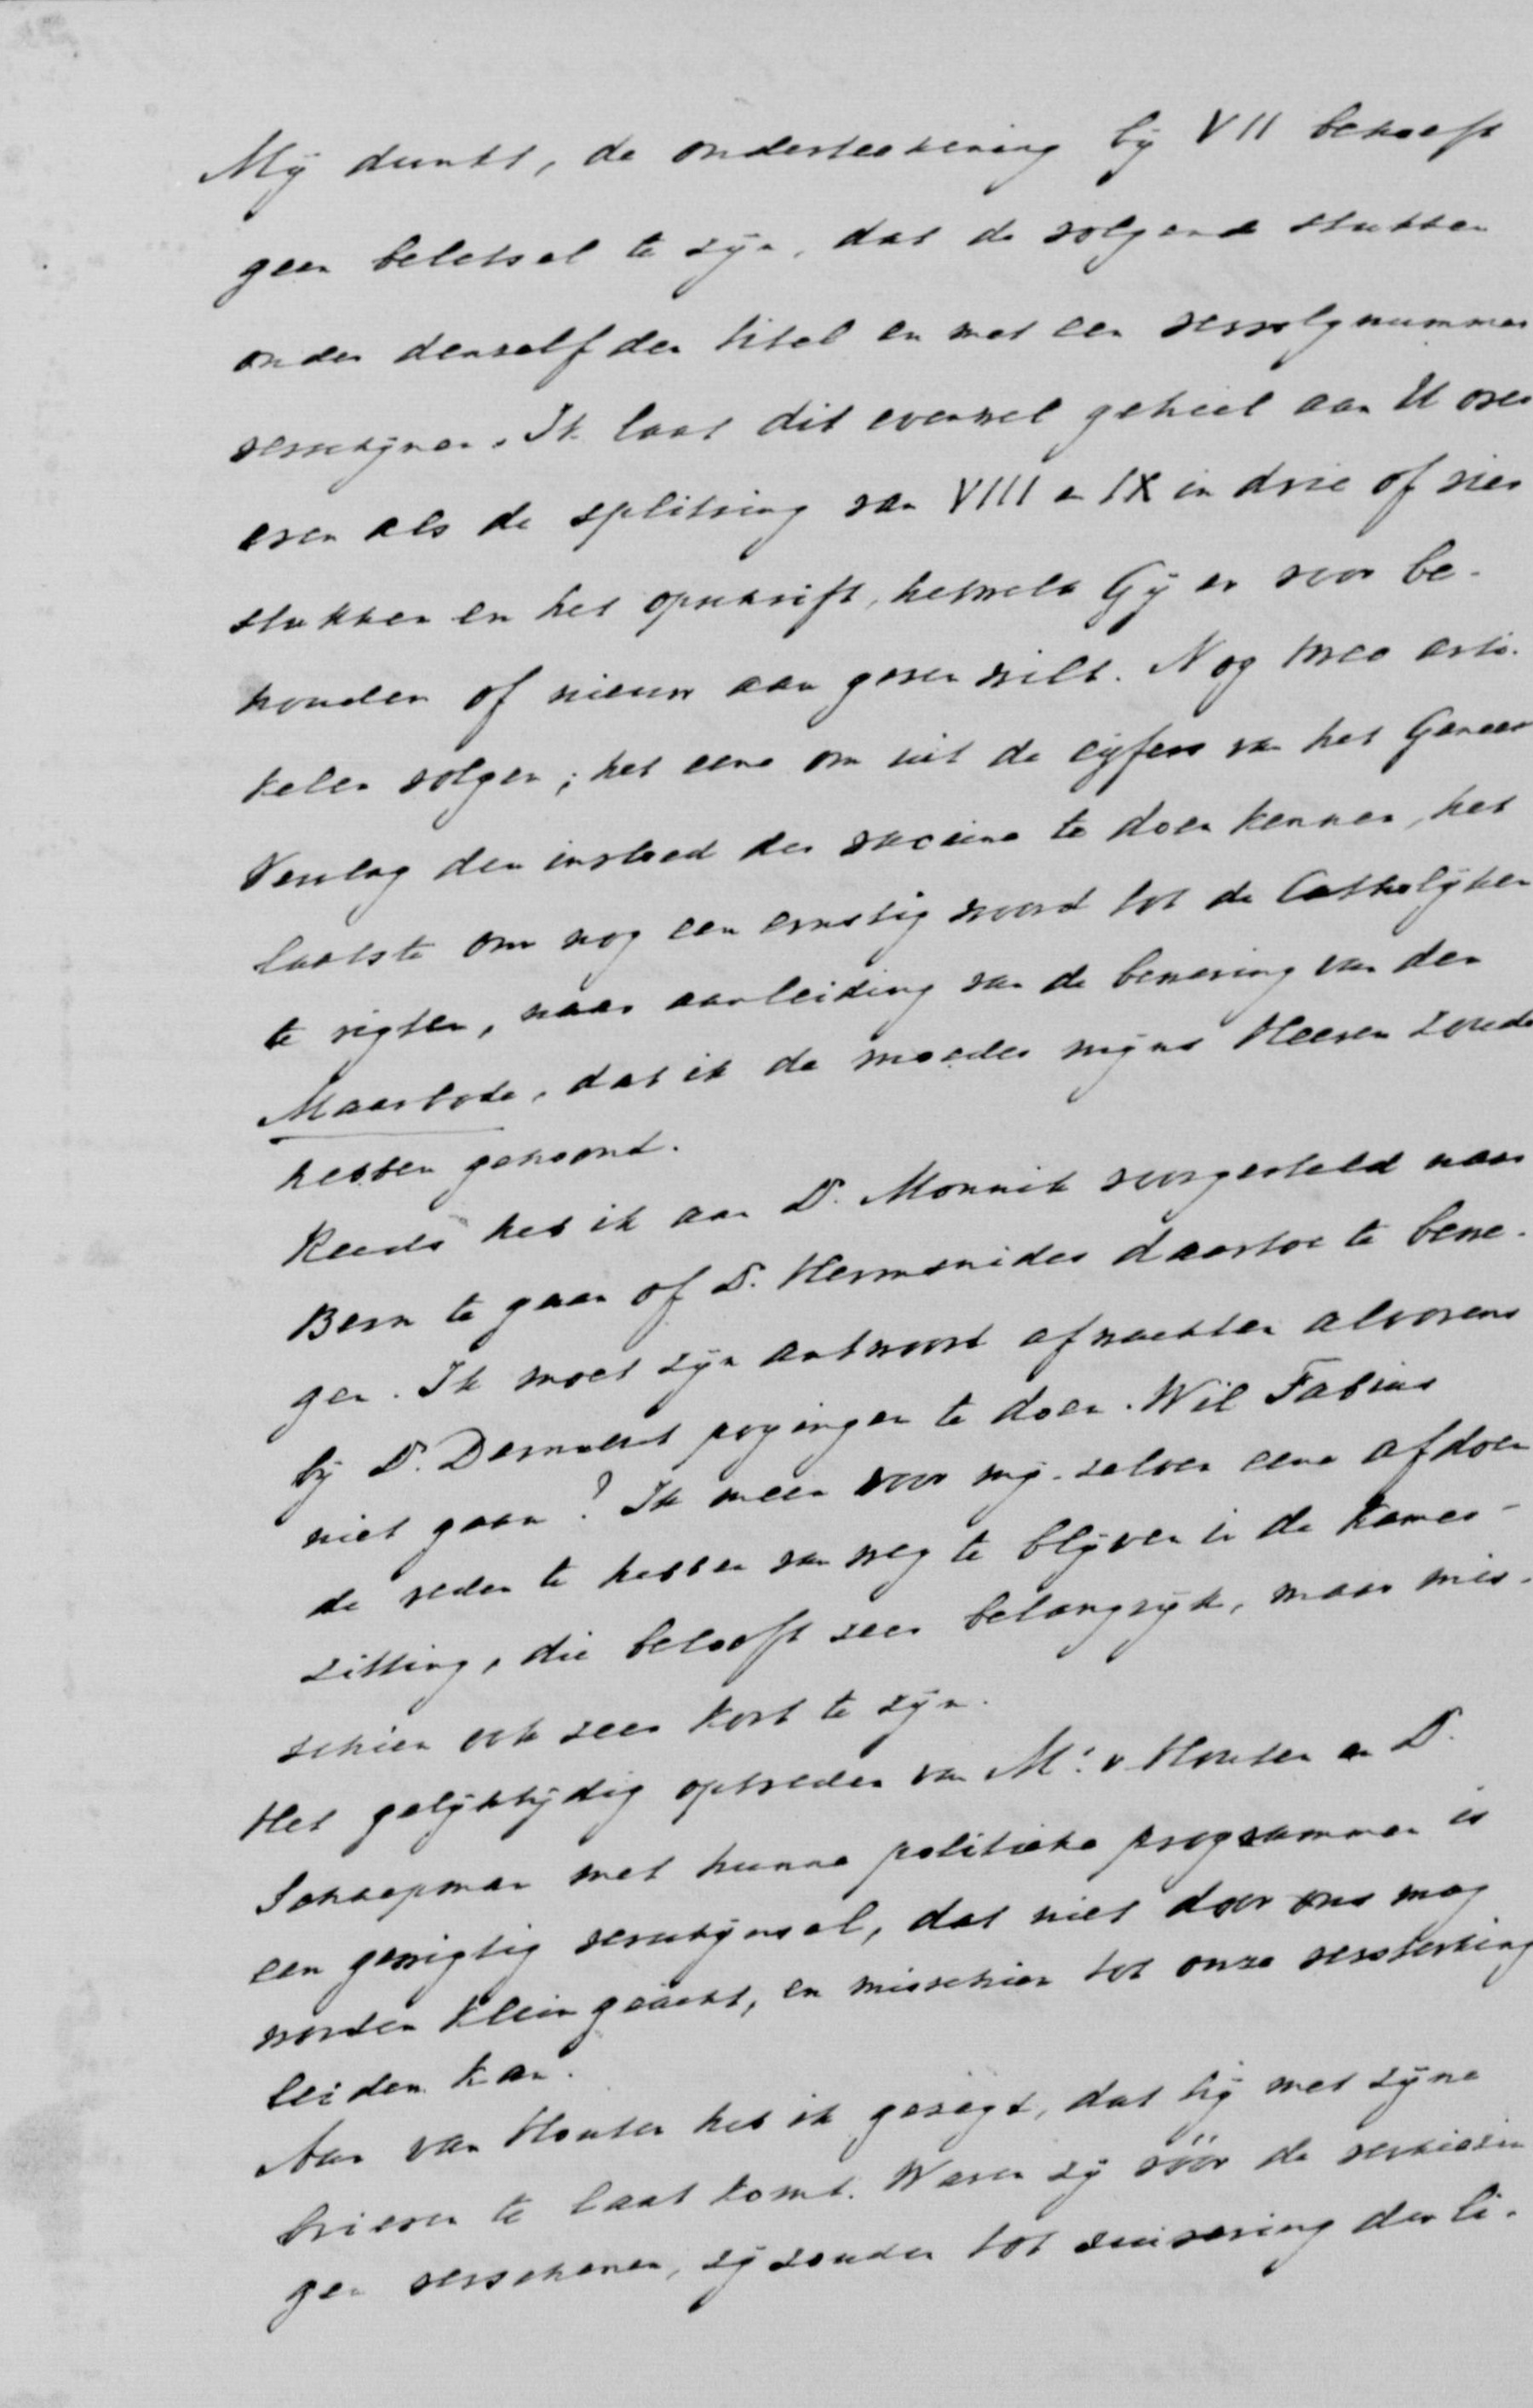 Mij dunkt, de onderteekening bij VII behoeft
geen beletsel te zijn, dat de volgende stukken
onder denzelfden titel en met een vervolgnummer
verschijnen. Ik laat dit evenwel geheel aan U over
even als de splitsing van VIII en IX in drie of vier
stukken en het opschrift, hetwelk Gij er voor be-
houden of nieuw aan geven wilt. Nog twee arti-
kelen volgen; het eene om uit de cijfers van het Geneesk
Verslag den invloed der vaccine te doen kennen, het
laatste om nog een ernstig woord tot de Catholijken
te rigten, naar aanleiding van de bewering van den
Maasbode, dat ik de moeder mijns Heeren zoude
hebben gehoond.
Reeds heb ik aan Dr. Monnik voorgesteld naar
Bern te gaan of Dr. Hermanides daartoe te bewe-
gen. Ik moet zijn antwoord afwachten alvorens
bij Dr. pogingen te doen. Wil Fabius
niet gaan? Ik meen voor mij-zelven eene afdoen
de reden te hebben van weg te blijven in de Kamer-
zitting, die belooft zeer belangrijk, maar mis-
schien ook zeer kort te zijn.
Het gelijktijdig optreden van Mr. v Houten en Dr.
Schaepman met hunne politieke programmen is
een gewigtig verschijnsel, dat niet door ons mag
worden klein geächt, en misschien tot onze versterking
leiden kan.
Aan van Houten heb ik gezegd, dat hij met zijne
brieven te laat komt. Waren zij vóór de verkiezin
gen verschenen, zij zouden tot zuivering der li-